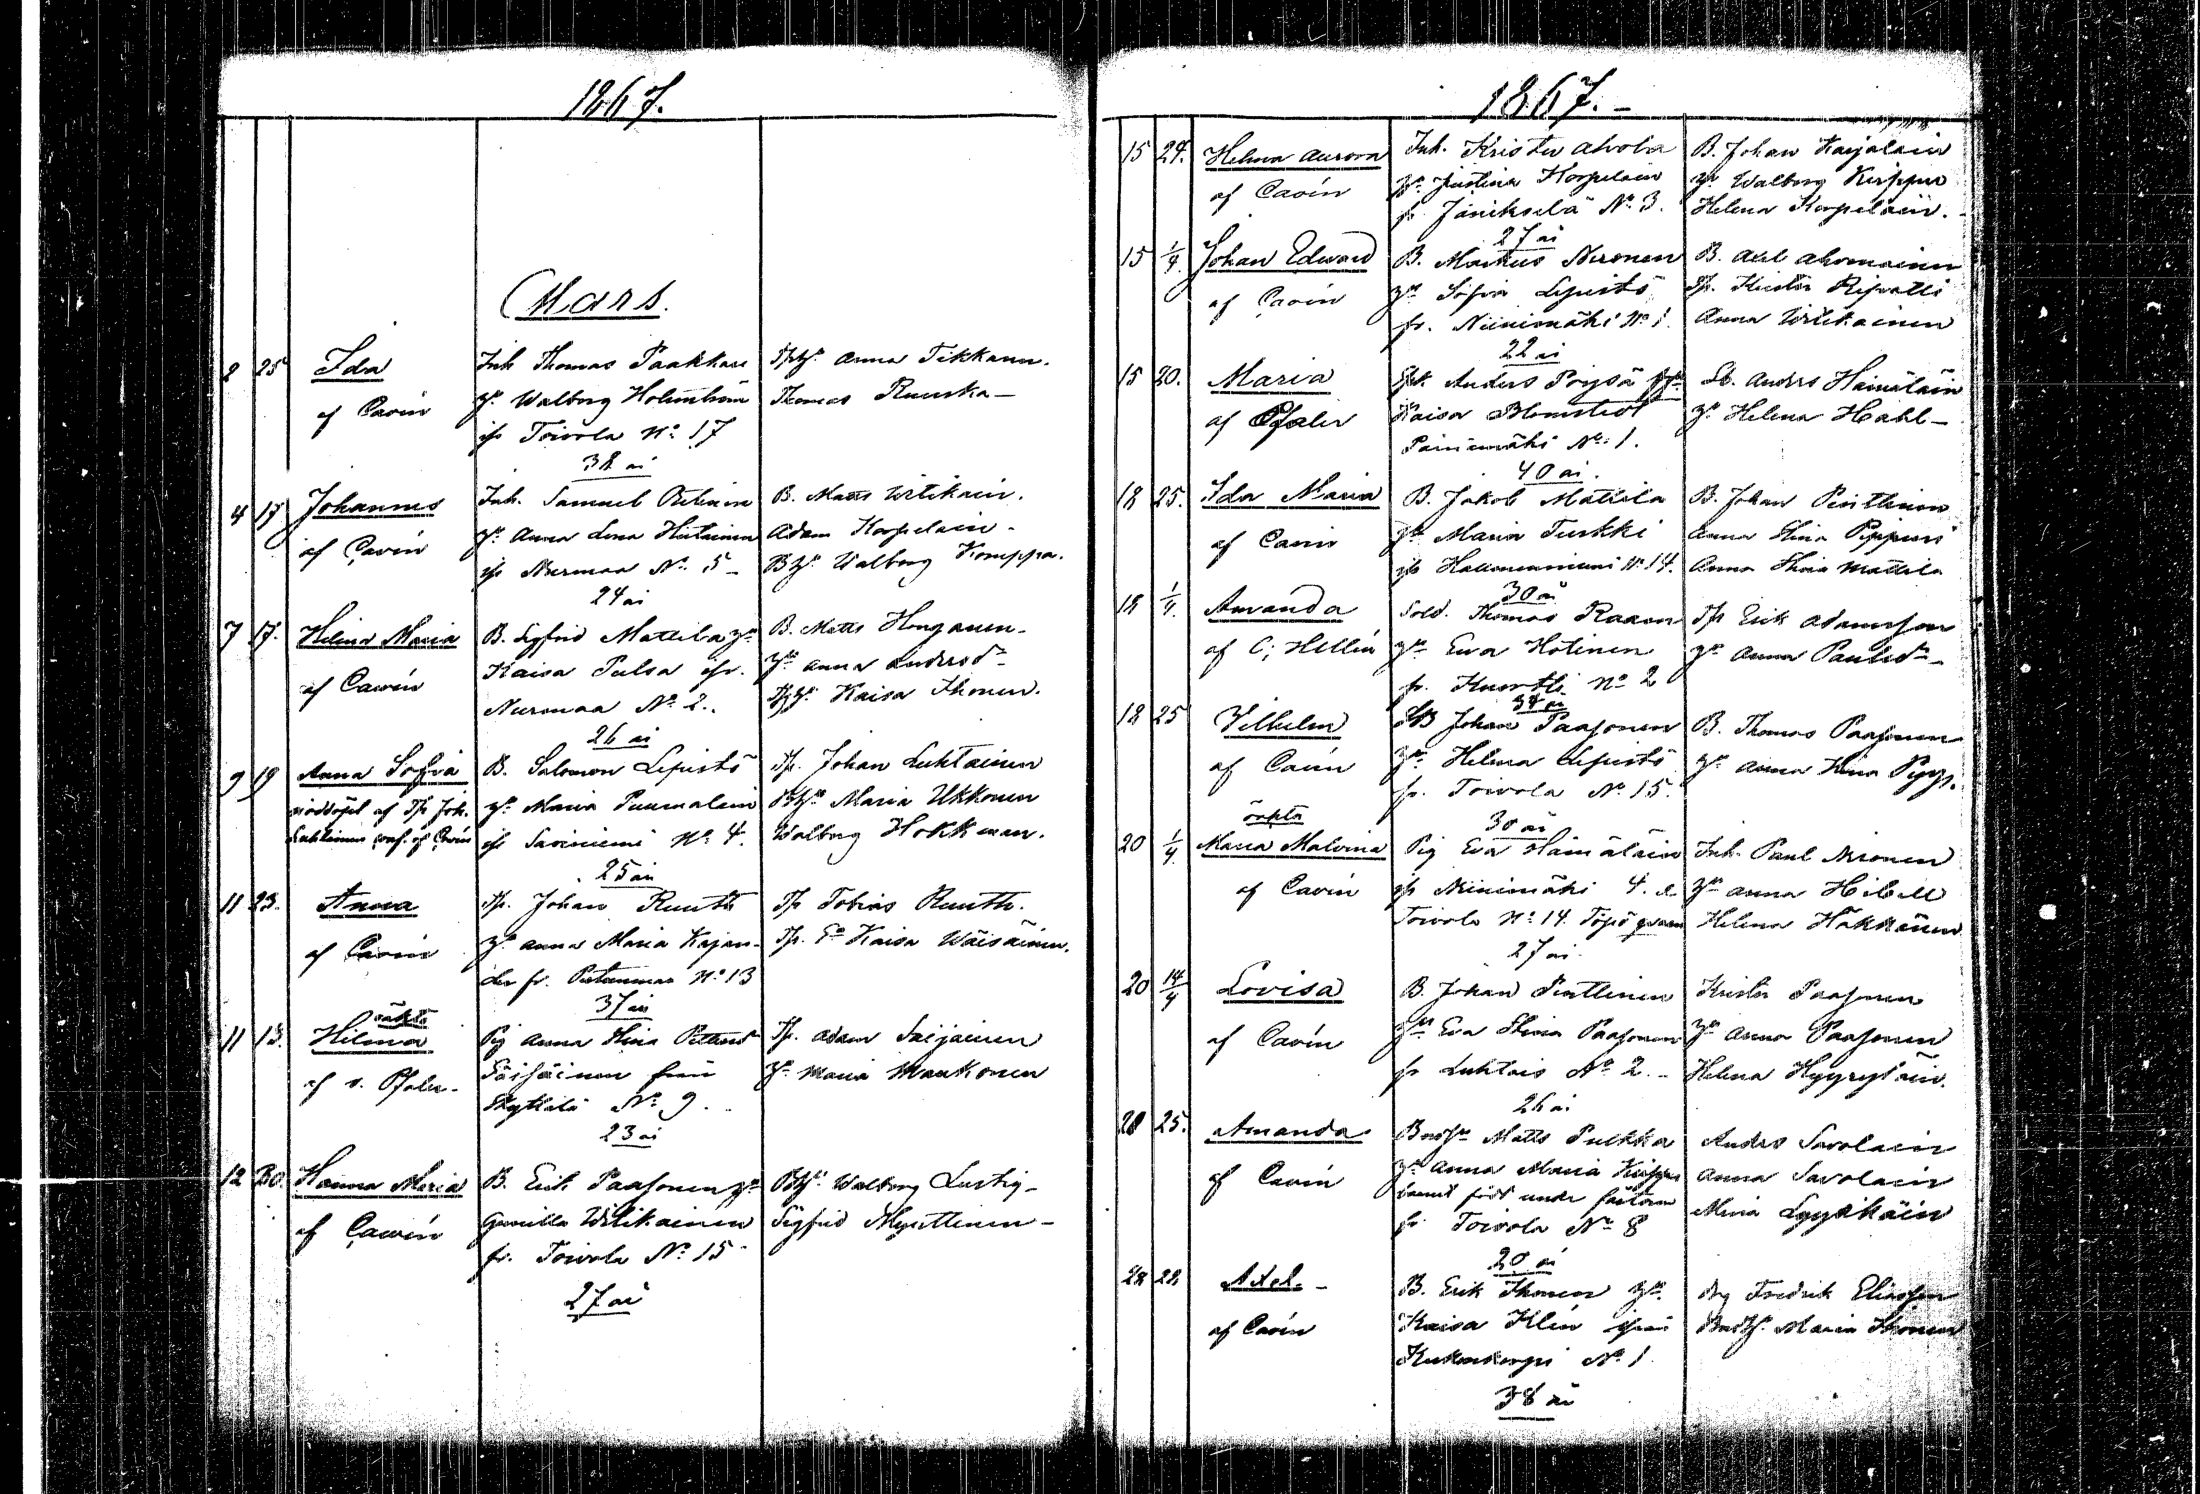 1867.
Mars.
2 25 Ida
af Cavén
Inh Thomas Paakkari
hu Walborg Holmström
ifr Toivola No 17
38 år
Anna Tikkanen.
Thomas Ruuska —
4 17 Johannes
af Cavén
Inh. Samuel
hu Anna Lena Hietainen
ifr Nurmaa No 5 —
24 år
B. Matts Wirtikain.
Adam Korpelain.
Walborg Komppa.
7 17. Helena Maria
af Cavén
B. Sigfrid Mattila hu
Kaisa Pulsa ifr.
Nurmaa No 2.
26 år
B. Matts Honganen.
hu Anna Andersdr
Kaisa Ihonen.
9 19 Anna Sofia
nöddöpt af Tp Joh.
Luhtainen conf. af Cavén
B. Salomon Lepistö
hu Maria Puumalain
ifr Saviniemi No 4.
25 år
Tp. Johan Luhtainen
Maria Ukkonen
Walborg Hokkanan.
11 23. Anna
af Cavén
Tp. Johan Ruuth
hu Anna Maria Kajan-
der fr. No 13
37 år
Tp Tobias Ruuth.
Tp. Ea Kaisa Wäisäinen.
11 13. oäkta
Hilma
af v. Pfaler.
Pig Anna Stina
Päijäinen från
Skyttälä No 9.
23 år
Tp. Adam Saijainen
hu Maria Maukonen
12 30. Hanna Maria
af Cawén
B. Erik Paasonen hu
Gunilla Wirtikainen
fr. Toivola No 15
27 år
Walborg Lustig —
Sigfrid Myrttinen —
1867. —
15 24. Helena Aurora
af Cavén
Inh. Krister Ahola
hu Justina Korpelain
fr. Jänikselä No 3.
27 år
B. Johan Karjalain
hu Walborg Kirppu
Helena Korpelain.
15 1/4 Johan Edward
af Cavén
B. Markus Nironen
hu Sofia Lepistö
fr. Niinimäki No 1.
22 år
B. Axel Ahomainen
Tp. Krister Repatti
Anna Wirtikainen
15 20. Maria
af Pfaler
Anders Pöysä hu
Kaisa Blomstedt
Päiniemäki No 1.
40 år.
Anders Hämäläin
hu Helena Hahl —
18 25. Ida Maria
af Cavén
B. Jakob Mattila
hu Maria Turkki
ifr Hallonummi No 14.
30 år
B. Johan Pinttinen
Anna Stina Pippuri
Anna Stina Mattila
18 1/4 Amanda
af C; Hellén
Sold. Thomas Raaxon
hu Eva Hotinen
fr. Kuortti No 2
34 år
Tp Erik Adamsson
hu Anna Paulsdr —
18 25 Vilhelm
af Cavén
Johan Paasonen
hu Helena Lepistö
fr. Toivola No 15.
30 år
B. Thomas Paasonen
hu Anna Stina Pyys.
20 1/4 oäkta
Maria Malvina
af Cavén
Pig Eva Hämäläin
ifr Niinimäki 4. &
Toivola No 14. Töpö qvarn
27 år.
Inh. Paul Nironen
hu Anna Hibell
Helena Häkkänen
20 14/4 Lovisa
af Cavén
B. Johan Pinttinen
hu Eva Stina Paasonen
fr Luhtais No 2. —
26 år.
Krister Paasonen
hu Anna Paasonen
Helena Hyyryläin.
28 25. Amanda
af Cavén
Matts Pulkka
hu Anna Maria Kirppu
barnet född under fästom
fr. Toivola No 8
20 år
Anders Savolain
Anna Savolain
Miina Lyytikäin
28 28 Axel. —
af Cavén
B. Erik Ihonen hu
Kaisa Klén ifrån
Kukonkorpi No 1.
38 år
Drg Fredrik Eliasson
Maria Ihonen